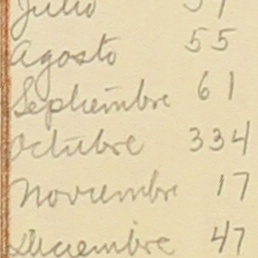 Julio
Agosto 55
Septiembre 61
Octubre 334
Noviembre 17
Diciembre 47